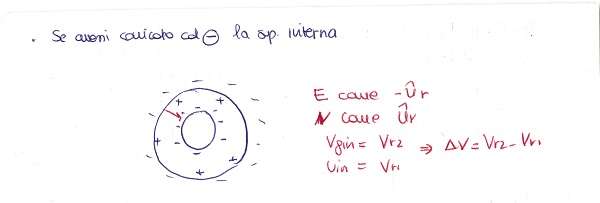 . Se avessi caricato col ⊖ la sup. interna
E come -ûr
N come ûr
Vfin = Vr2 ⇒ ΔV = Vr2 - Vr1
Vin = Vr1